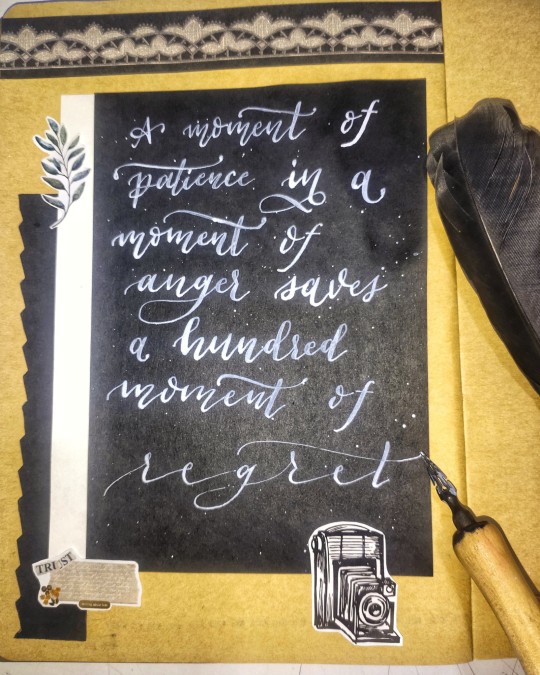 A moment of
patience in a
moment of
anger saves
a hundred
moment of
regret
TRUST